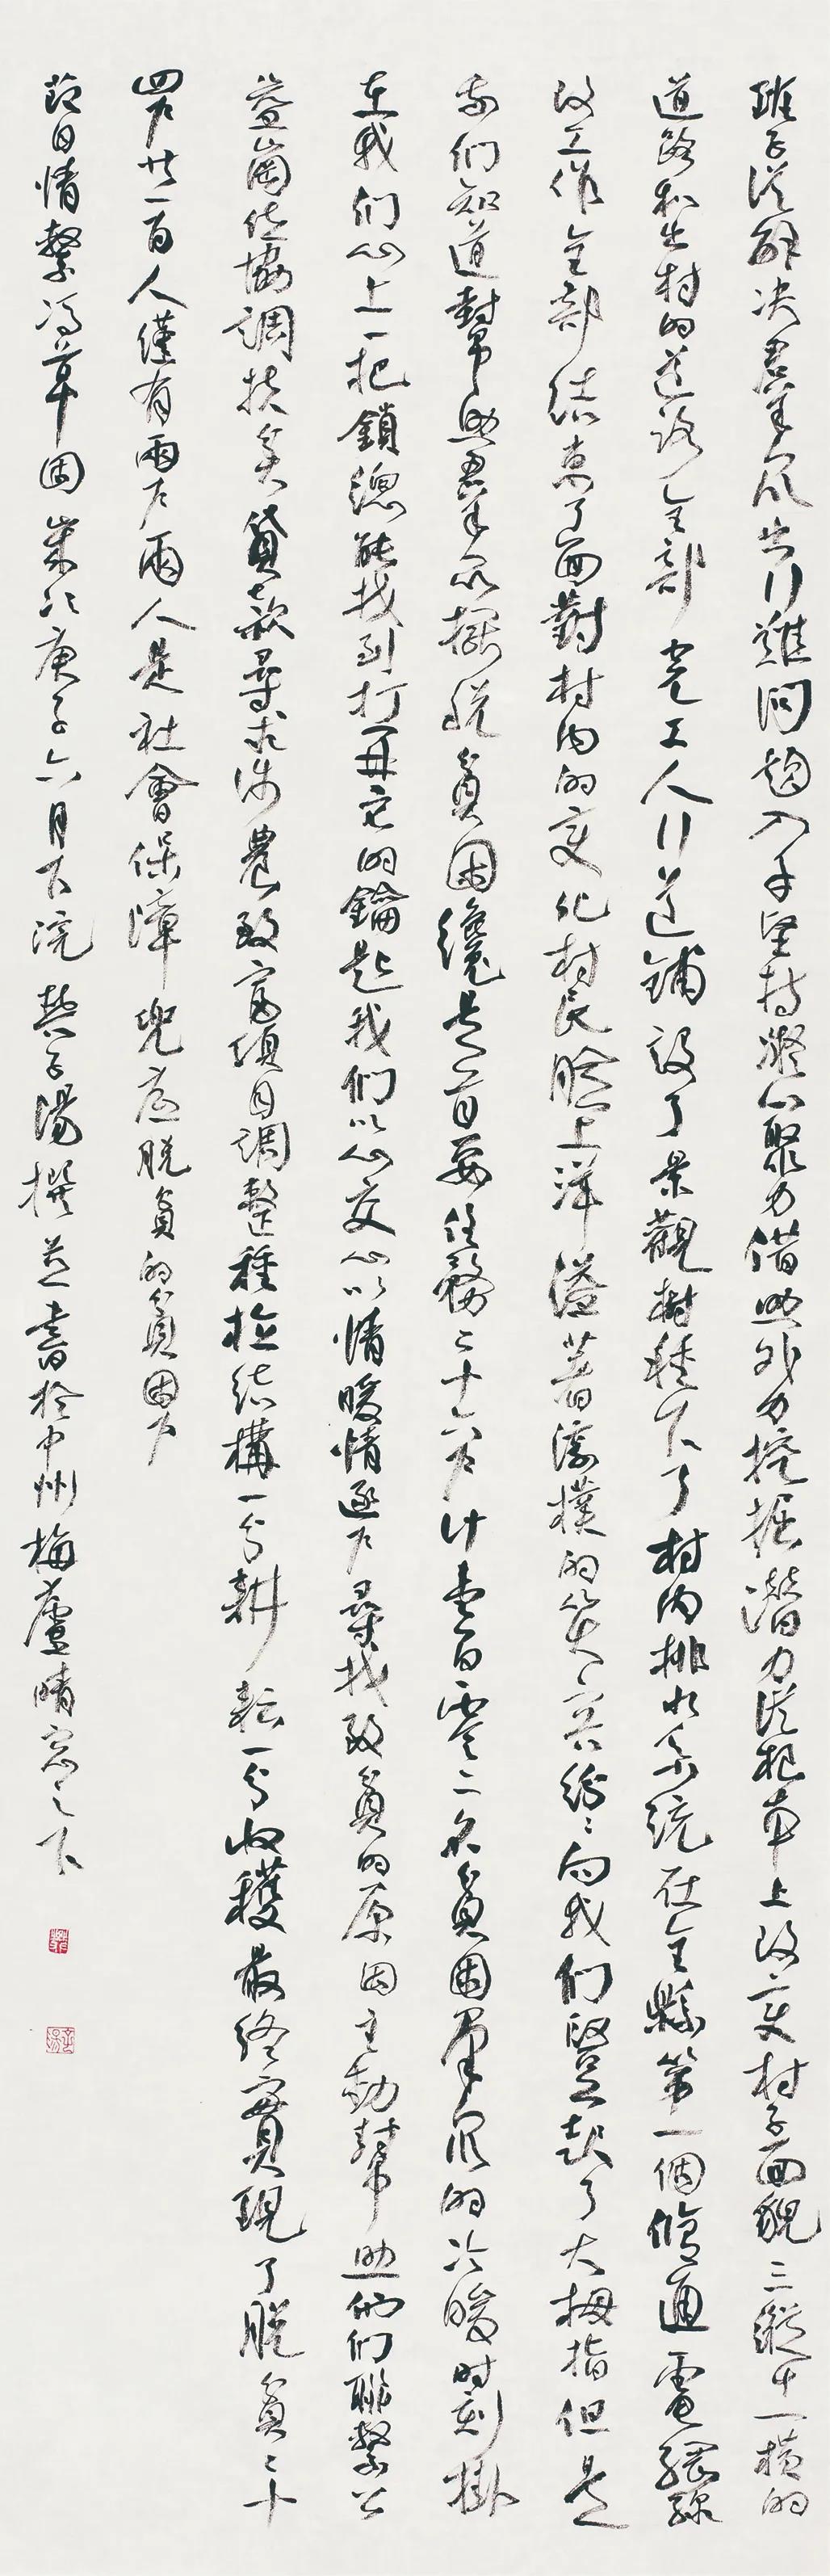 班子從解決羣眾出行難問題入手堅持凝心聚力借助外力挖掘潛力從根本上改變村子面貌三縱十一橫的
道路和出村的道路全部完工人行道鋪設了景觀樹種下了村内排水系統在全縣第一個修通電網線
改工作全部結束了面對村内的變化村民臉上洋溢著淳樸的笑容紛紛向我們豎起了大拇指但是
我們知道幫助羣眾擺脱貧困纔是首要任務二十六户计壹百零二名貧困羣眾的冷暖時刻掛
在我們心上一把鎖總能找到打開它的鑰匙我們以心交心以情暖情逐户尋找致貧的原因主動幫助他們聯繫公
益崗位協調扶貧貸款尋求涉農致富項目調整種植結構一分耕耘一分收穫最終實現了脱貧二十
四户廿一百人僅有兩户兩人是社會保障兜底脱貧的貧困户
節日情繫馮草固 歲次庚子六月下浣 樊子陽撰並書於中州梅廬晴窓之下